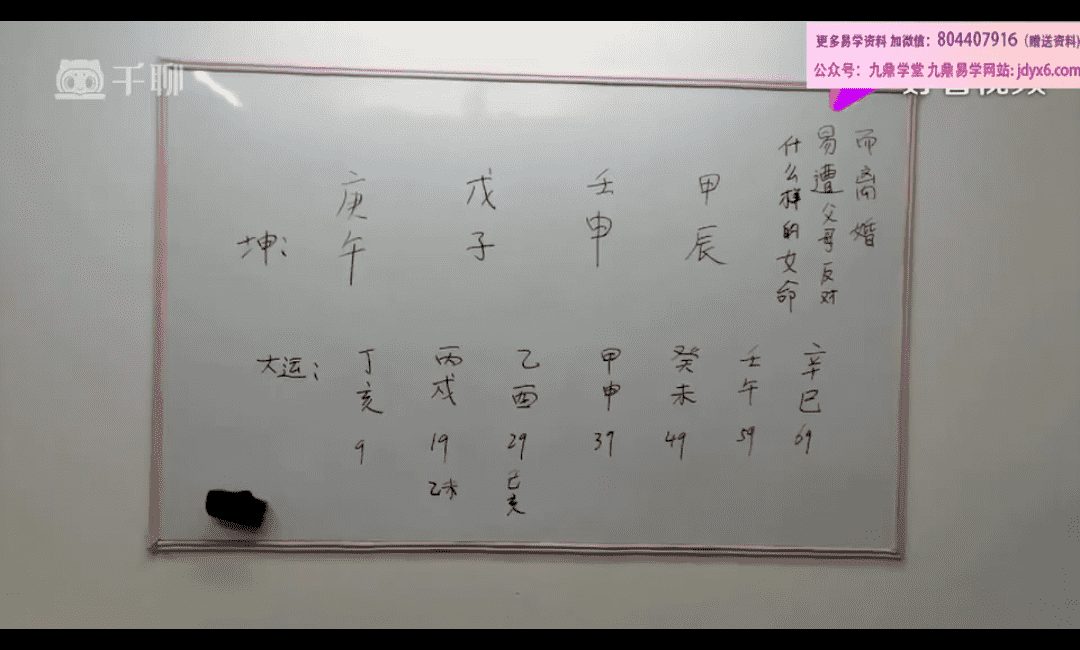 更多易学资料 加微信：804407916（赠送资料)
公众号：九鼎学堂 九鼎易学网站: jdyx6.com
千聊
什么样的女命
易遭父母反对
而离婚
庚 戊 壬 甲
坤：
午 子 申 辰
大运：
丁 丙 乙 甲 癸 壬 辛
亥 戌 酉 申 未 午 巳
9 19 29 39 49 59 69
乙未 己亥